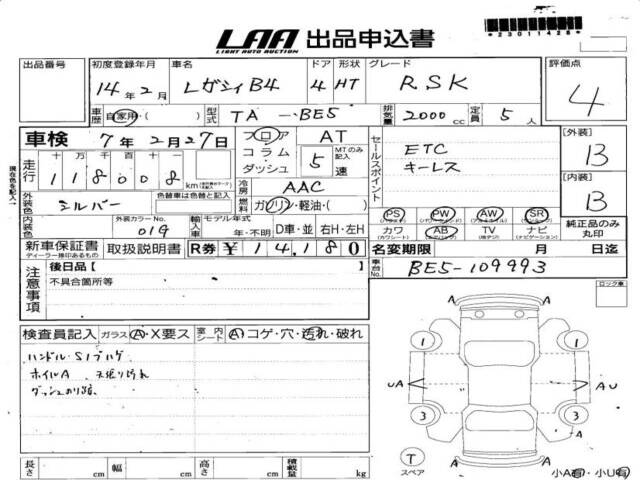 LAA 出品申込書
LIGHT AUTO AUCTION
*23011428*
出品番号 初度登録年月 車名 ドア 形状 グレード 評価点
14年2月 レガシィB4 4 HT RSK 4
車歴 自家用・( ) 型式 TA-BE5 排気量 2000cc 定員 5人
車検 7年2月27日 フロア AT [外装]
走行 十万千百十一 コラム・ MTのみ記入 セールスポイント ETC B
118008 km ダッシュ 5速 キーレス
冷房 AAC [内装]
外装色 シルバー 色替車は色替と記入 燃料 ガソリン・軽油・( ) B
現在色を記入
PS PW AW SR 純正品のみ丸印
(パワステ) (パワーウィンド) (アルミホイル) (サンルーフ)
内装色 外装カラーNo. 01G 輸入車 モデル年式 年・不明 D車・並 右H・左H カワ AB TV ナビ
(カワシート) (エアバッグ) (地デジ) (ナビゲーション)
新車保証書 取扱説明書 R券 ¥14,180 名変期限 月 日迄
ディーラー捺印あるもの
注意事項 後日品[ ] 車台No. BE5-109993
不具合箇所等 ロック車
検査員記入 ガラス A・X要ス 室内シート A コゲ・穴・汚れ・破れ
ハンドル・S1ブハゲ
ホイルA 天張り汚れ
1 1
UA A A AU
3 3
A A
T
スペア
長さ cm 幅 cm 高さ cm 積載量 kg 小A有・小U有